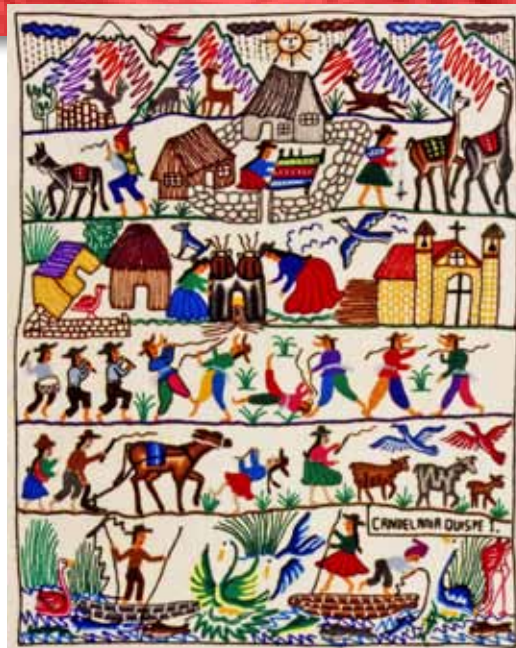 CANDELARIA QUISPE T.